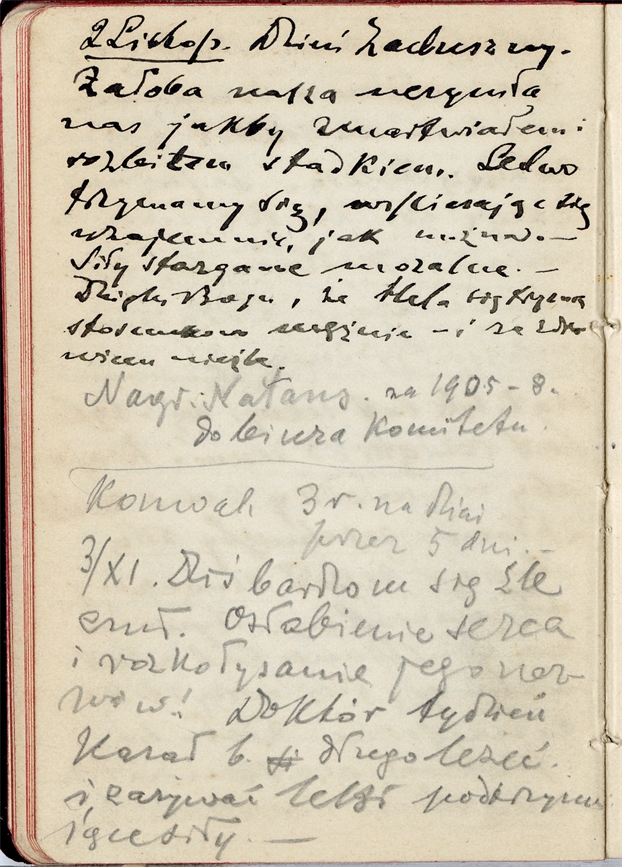 2 Listop. Dzień Zaduszny.
Żałoba nasza uczyniła
nas jakby zmartwiałem i
rozbitem stadkiem. Ledwo
trzymamy się, wspierając się
wzajemnie, jak można. —
Siły stargane moralne. —
Dzięki Bogu, że Hela się trzyma
stosunkowo mężnie — i ze zdro-
wiem nieźle.
Nagr. Natans. za 1905 - 8.
do biura Komitetu.
Konwal. 3 r. na dzień
przez 5 dni. —
3/XI. Dziś bardzom się źle
czuł. Osłabienie serca
i rozkołysanie jego ner-
wów! Doktór tydzień
Kazał b. długo leżeć.
i zażywać leki podtrzymu
jące siły. —